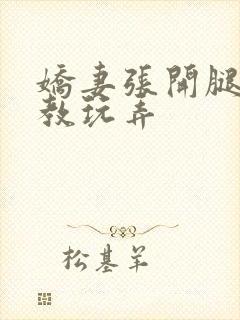 嬌妻張開腿
教玩弄
松基羊